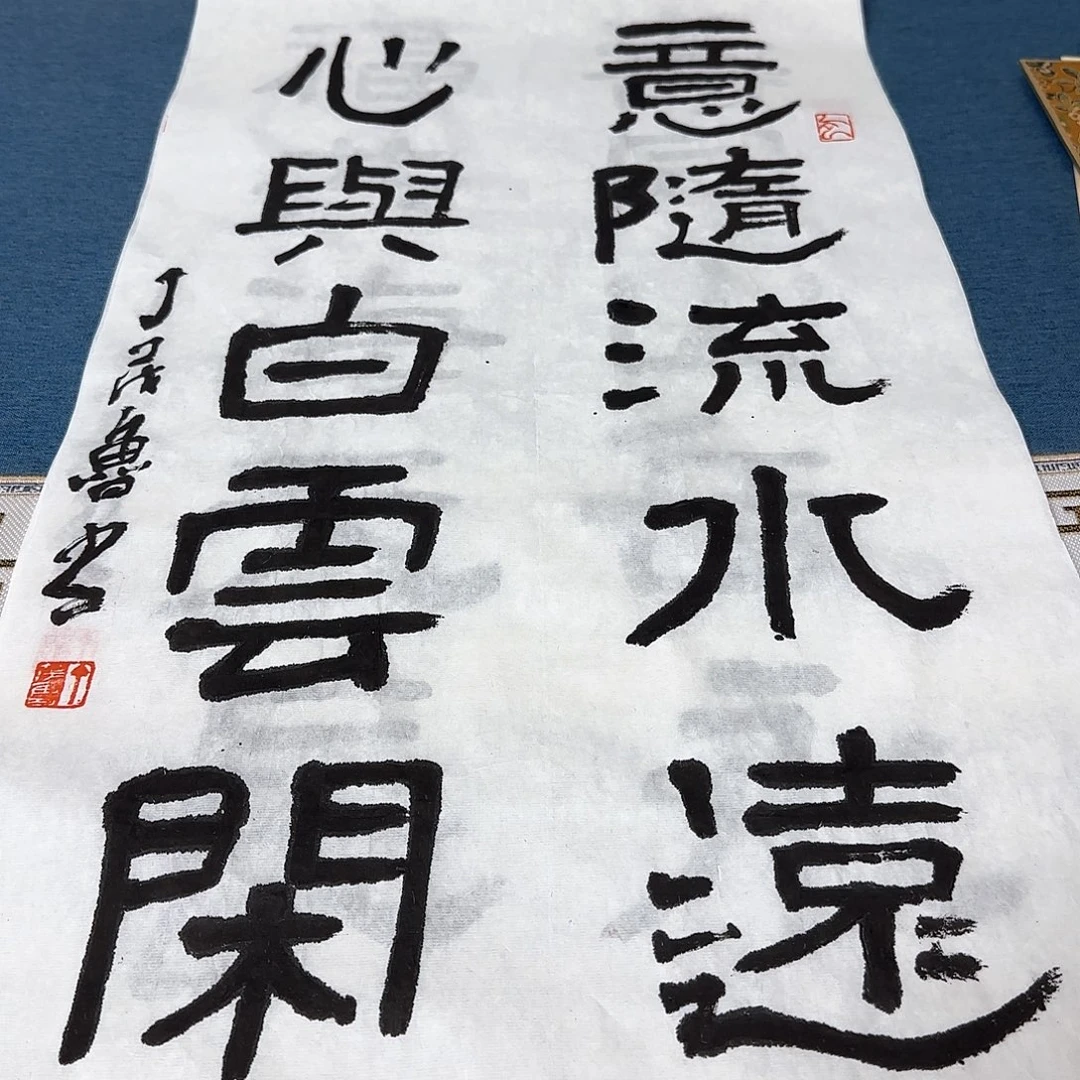 意隨流水遠
心與白雲閑
魯書